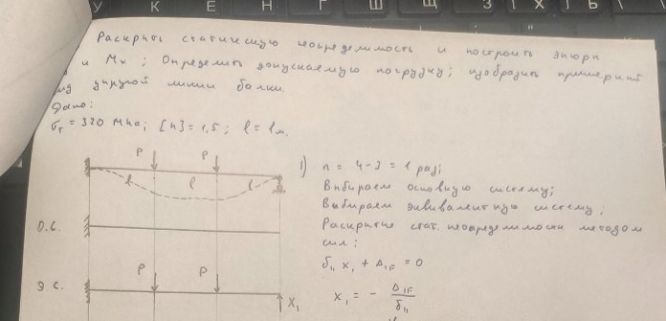 У К Е Н Г Ш Щ З Х Ъ
Раскрыть статическую неопределимость и построить эпюры
и Mx ; Определить допускаемую нагрузку; изобразить примерный
вид упругой линии балки.
Дано:
σт = 320 МПа; [n] = 1,5 ; l = 1м.
P P
l l l
1) n = 4 - 3 = 1 раз;
Выбираем основную систему;
Выбираем эквивалентную систему;
О.С.
Раскрытие стат. неопределимости методом
сил:
δ11 x1 + Δ1F = 0
P P
Э.С.
X1
x1 = - Δ1F / δ11